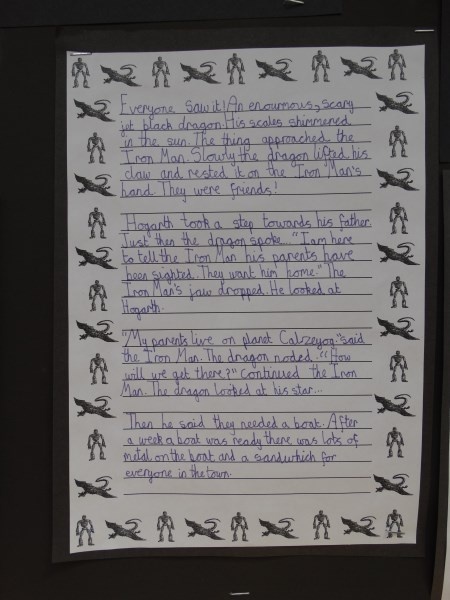 Everyone saw it! An enourmous, scary
jet black dragon. His scales shimmered
in the sun. The thing approached the
Iron Man. Slowly the dragon lifted his
claw and rested it on the Iron Man's
hand. They were friends!
Hogarth took a step towards his father.
Just then the dragon spoke... "I am here
to tell the Iron Man his parents have
been sighted. They want him home." The
Iron Man's jaw dropped. He looked at
Hogarth.
"My parents live on planet Calzeyon." said
the Iron Man. The dragon noded. "How
will we get there?" continued the Iron
Man. The dragon looked at his star...
Then he said they needed a boat. After
a week a boat was ready there was lots of
metal on the boat and a sandwhich for
everyone in the town.